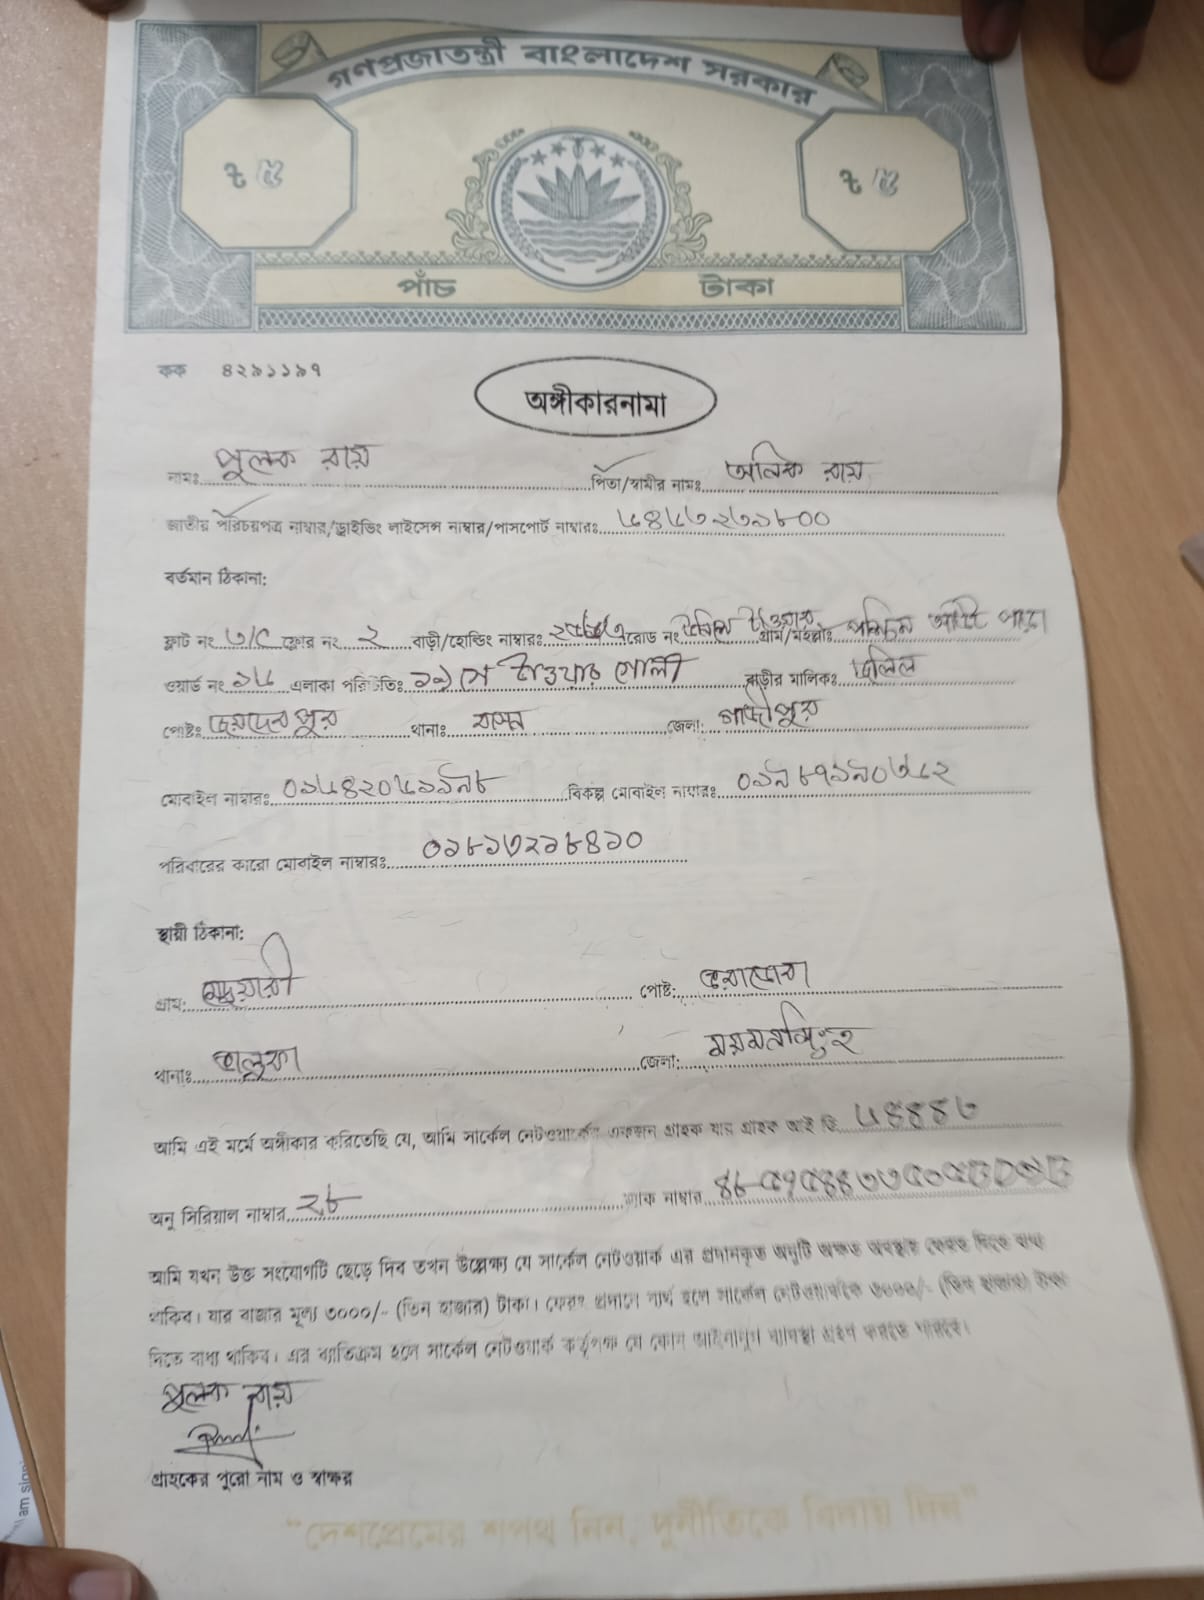 গণপ্রজাতন্ত্রী বাংলাদেশ সরকার
৳ ৫ ৳ ৫
পাঁচ টাকা
কক ৪২৯১১৯৭
অঙ্গীকারনামা
নামঃ পুলক রায় পিতা/স্বামীর নামঃ অনিক রায়
জাতীয় পরিচয়পত্র নাম্বার/ড্রাইভিং লাইসেন্স নাম্বার/পাসপোর্ট নাম্বারঃ ৬৪৬৩২৩৯৮০০
বর্তমান ঠিকানা:
ফ্লাট নং ৩/C ফ্লোর নং ২ বাড়ী/হোল্ডিং নাম্বারঃ রোড নং টাওয়ার গ্রাম/মহল্লাঃ পশ্চিম পাড়া
ওয়ার্ড নং ১৬ এলাকা পরিচিতিঃ টাওয়ার গোলী বাড়ীর মালিকঃ দলিল
পোষ্টঃ জয়দেবপুর থানাঃ বাসন জেলা: গাজীপুর
মোবাইল নাম্বারঃ ০১৬৪২০৬১১৯৮ বিকল্প মোবাইল নাম্বারঃ ০১৯৮৭১৯০৩৮২
পরিবারের কারো মোবাইল নাম্বারঃ ০১৮১৩২১৮৪১০
স্থায়ী ঠিকানা:
গ্রাম: পোষ্ট: ভরাডোবা
থানাঃ ভালুকা জেলা: ময়মনসিংহ
আমি এই মর্মে অঙ্গীকার করিতেছি যে, আমি সার্কেল নেটওয়ার্কের একজন গ্রাহক যার গ্রাহক আই ডি ৬৪৪৪৩
অনু সিরিয়াল নাম্বার ২৮ ম্যাক নাম্বার
আমি যখন উক্ত সংযোগটি ছেড়ে দিব তখন উল্লেক্ষ্য যে সার্কেল নেটওয়ার্ক এর প্রদানকৃত অনুটি অক্ষত অবস্থায় ফেরত দিতে বাধ্য
থাকিব। যার বাজার মূল্য ৩০০০/- (তিন হাজার) টাকা। ফেরৎ প্রদানে ব্যর্থ হলে সার্কেল নেটওয়ার্ককে ৩০০০/- (তিন হাজার) টাকা
দিতে বাধ্য থাকিব। এর ব্যাতিক্রম হলে সার্কেল নেটওয়ার্ক কর্তৃপক্ষ যে কোন আইনানুগ ব্যবস্থা গ্রহন করতে পারবে।
পুলক রায়
গ্রাহকের পুরো নাম ও স্বাক্ষর
"দেশপ্রেমের শপথ নিন, দুর্নীতিকে বিদায় দিন"